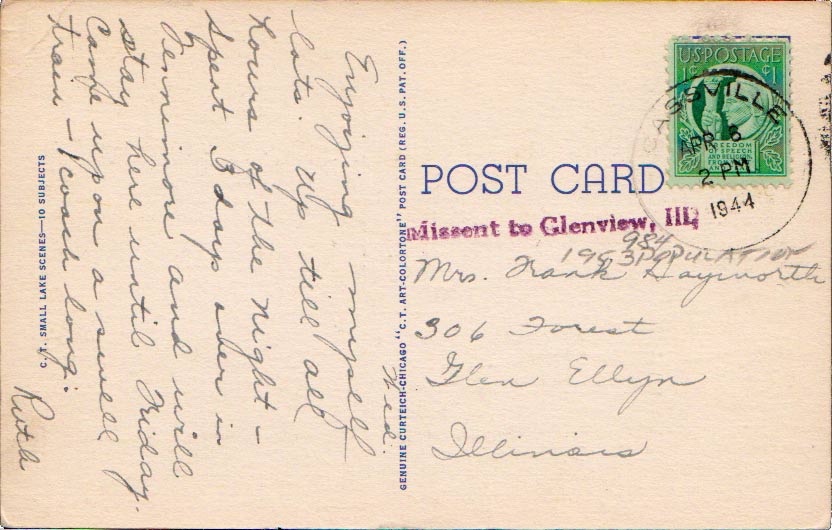 Wed.
Enjoying myself
lots. Up till all
hours of the night –
Spent 3 days over in
Fennimore and will
stay here until Friday.
Came upon a swell
train – 1 coach long.
Ruth
C.T. SMALL LAKE SCENES—10 SUBJECTS
GENUINE CURTEICH-CHICAGO "C.T. ART-COLORTONE" POST CARD (REG. U.S. PAT. OFF.)
U·S·POSTAGE
1¢ ¢1
FREEDOM
OF SPEECH
AND RELIGION,
FROM
AND
CASSVILLE
APR 6
2 PM
1944
POST CARD
Missent to Glenview, Ill,
984
1983 POPULATION
Mrs. Frank Hayworth
306 Forest
Glen Ellyn
Illinois